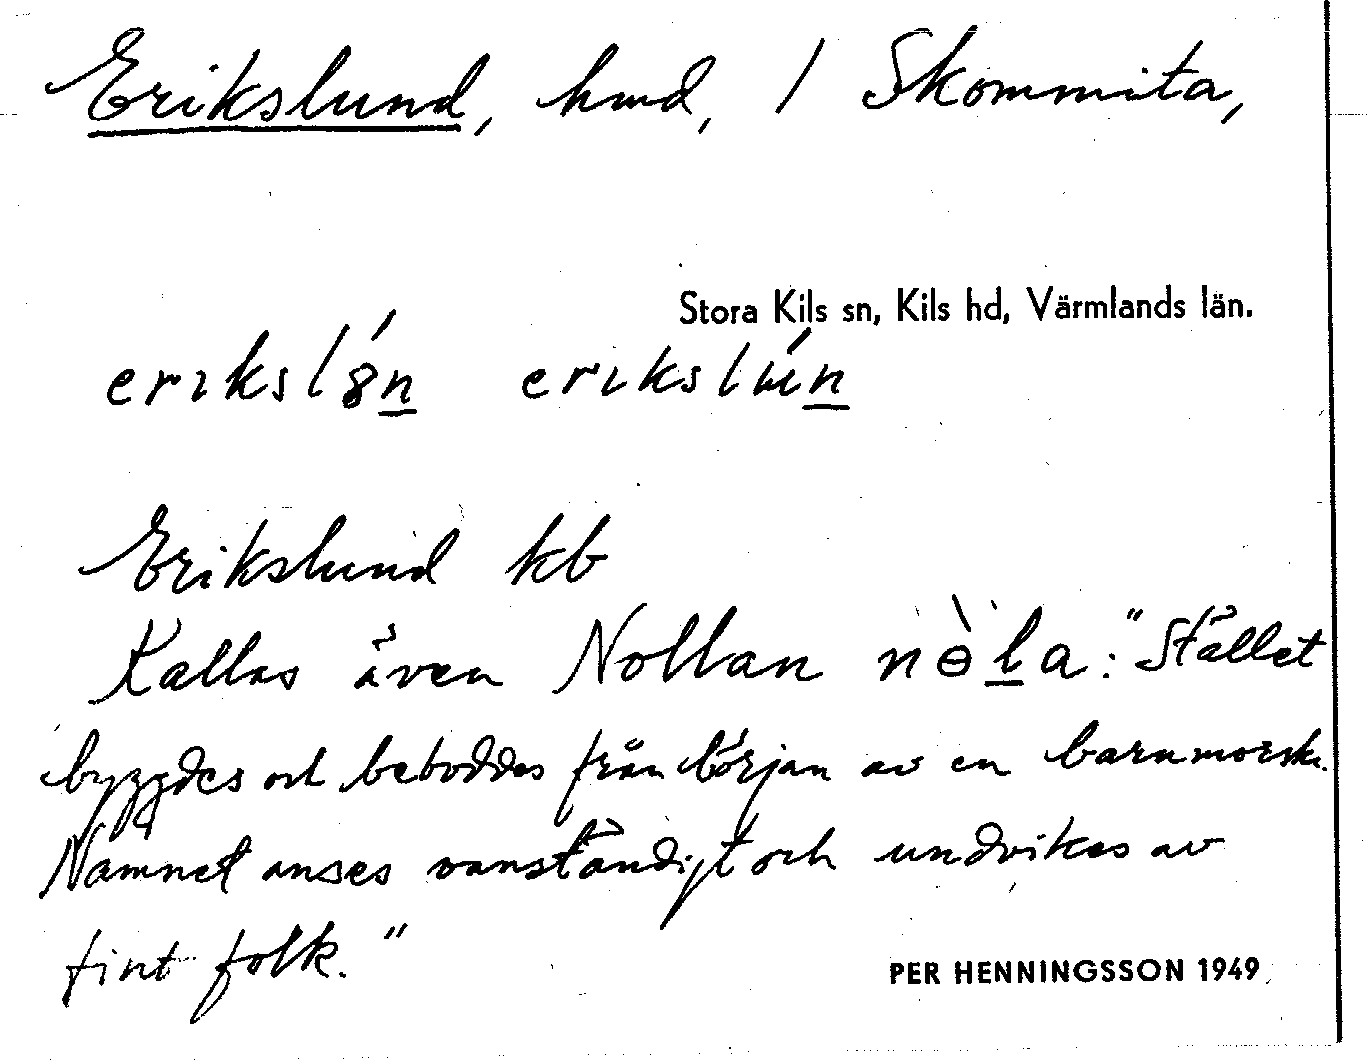 Erikslund, hmd, / Skommita,
Stora Kils sn, Kils hd, Värmlands län.
erikslón erikslún
Erikslund kb
Kallas även Nollan nɵ̀la: "Stället
byggdes och beboddes från början av en barnmorska.
Namnet anses vanständigt och undvikes av
fint folk."
PER HENNINGSSON 1949